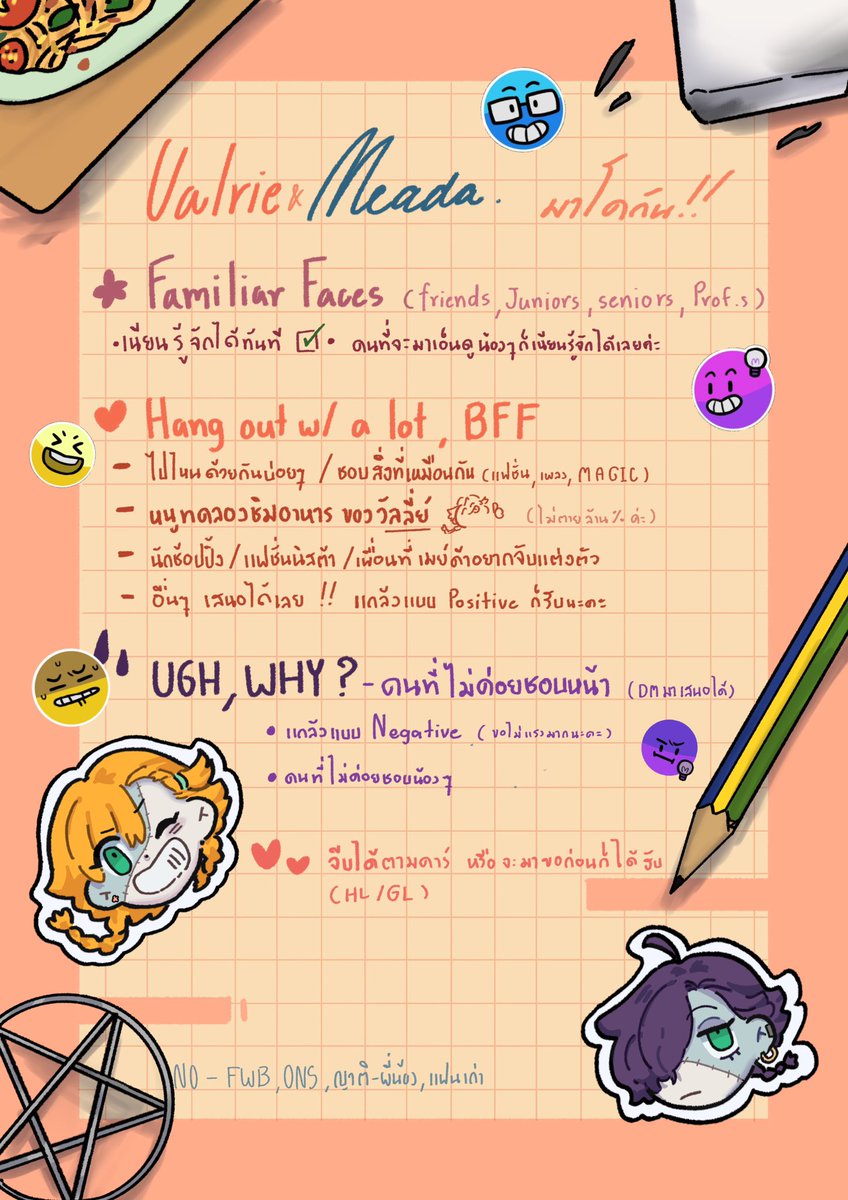 Valrie x Meada. มาโคกัน!!
Familiar Faces (friends, Juniors, seniors, Prof.s)
• เนียนรู้จักได้ทันที ☑ • คนที่จะมาเอ็นดูน้องๆก็เนียนรู้จักได้เลยค่ะ
Hang out w/ a lot, BFF
- ไปไหนด้วยกันบ่อยๆ / ชอบสิ่งที่เหมือนกัน (แฟชั่น, เพลง, MAGIC)
- หนูทดลองชิมอาหาร ของวัลลี่ย์ (ไม่ตายล้าน % ค่ะ)
- นักช้อปปิ้ง / แฟชั่นนิสต้า / เพื่อนที่เมย์ด้าอยากจับแต่งตัว
- อื่นๆ เสนอได้เลย !! แกล้งแบบ Positive ก็รับนะคะ
UGH, WHY? - คนที่ไม่ค่อยชอบหน้า (DM มาเสนอได้)
• แกล้งแบบ Negative (ขอไม่แรงมากนะคะ)
• คนที่ไม่ค่อยชอบน้องๆ
จีบได้ตามคาร์ หรือจะมาขอก่อนก็ได้ฮับ
(HL/GL)
NO - FWB, ONS, ญาติ-พี่น้อง, แฟนเก่า